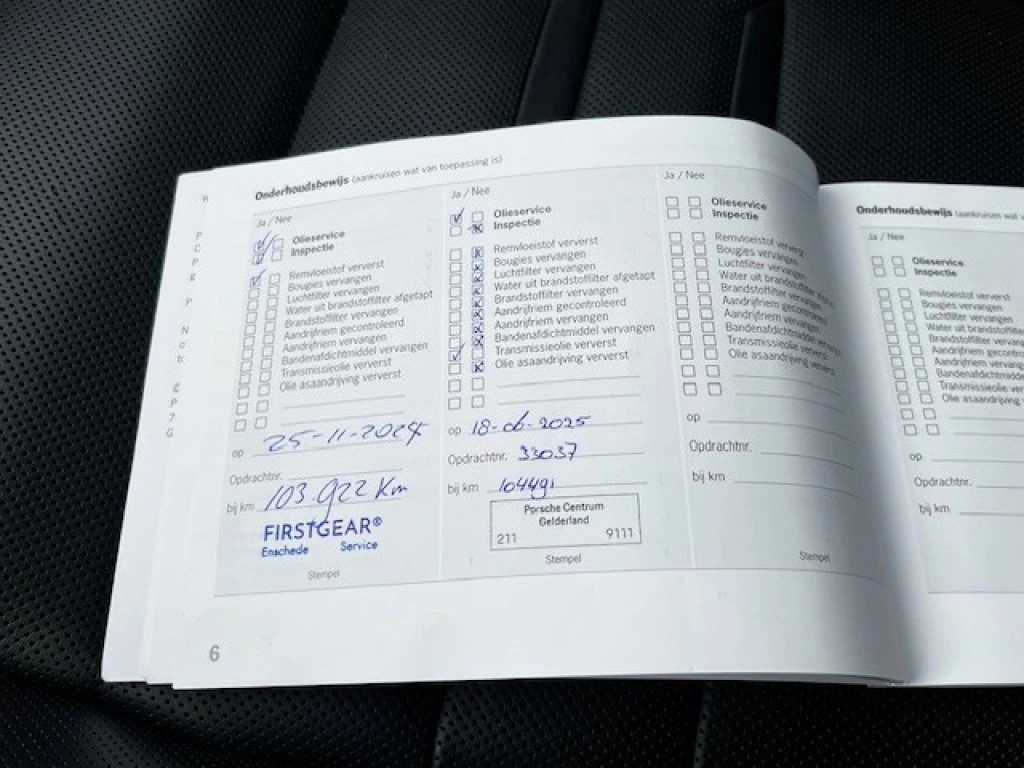 Onderhoudsbewijs (aankruisen wat van toepassing is)
Ja / Nee
Olieservice
Inspectie
Remvloeistof ververst
Bougies vervangen
Luchtfilter vervangen
Water uit brandstoffilter afgetapt
Brandstoffilter vervangen
Aandrijfriem gecontroleerd
Aandrijfriem vervangen
Bandenafdichtmiddel vervangen
Transmissieolie ververst
Olie asaandrijving ververst
op 25-11-2024
Opdrachtnr.
bij km 103.922 Km
FIRSTGEAR®
Enschede Service
Stempel
Ja / Nee
Olieservice
Inspectie
Remvloeistof ververst
Bougies vervangen
Luchtfilter vervangen
Water uit brandstoffilter afgetapt
Brandstoffilter vervangen
Aandrijfriem gecontroleerd
Aandrijfriem vervangen
Bandenafdichtmiddel vervangen
Transmissieolie ververst
Olie asaandrijving ververst
op 18-06-2025
Opdrachtnr. 33037
bij km 104491
Porsche Centrum
Gelderland
211 9111
Stempel
Ja / Nee
Olieservice
Inspectie
Remvloeistof ververst
Bougies vervangen
Luchtfilter vervangen
Water uit brandstoffilter
Brandstoffilter vervangen
Aandrijfriem gecontroleerd
Aandrijfriem vervangen
Bandenafdichtmiddel
Transmissieolie ververst
Olie asaandrijving ververst
op
Opdrachtnr.
bij km
Stempel
6
Onderhoudsbewijs (aankruisen wat v
Ja / Nee
Olieservice
Inspectie
Remvloeistof ververst
Bougies vervangen
Luchtfilter vervangen
Water uit brandstoffilter
Brandstoffilter vervangen
Aandrijfriem gecontro
Aandrijfriem vervangen
Bandenafdichtmidde
Transmissieolie ver
Olie asaandrijving v
op
Opdrachtnr.
bij km